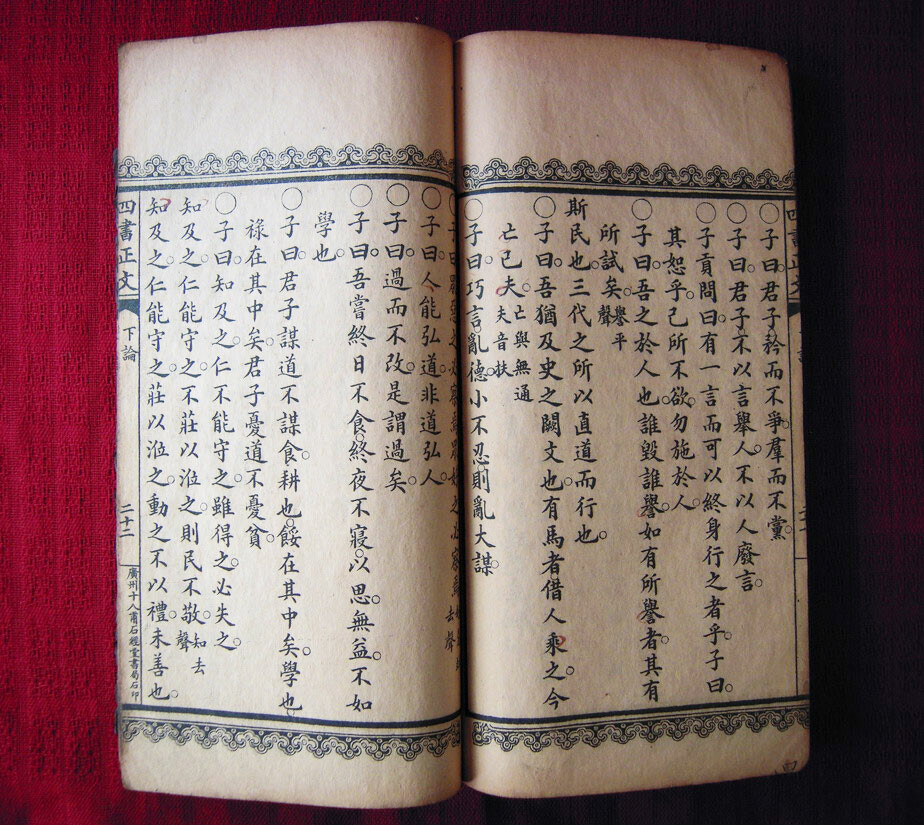 四書正文
○子曰。君子矜而不爭。羣而不黨。
○子曰。君子不以言舉人。不以人廢言。
○子貢問曰。有一言而可以終身行之者乎。子曰。
其恕乎。己所不欲。勿施於人。
○子曰。吾之於人也。誰毀誰譽。如有所譽者。其有
所試矣。譽平聲
斯民也。三代之所以直道而行也。
○子曰。吾猶及史之闕文也。有馬者借人乘之。今
亡已夫。亡與無通夫音扶
○子曰。巧言亂德。小不忍。則亂大謀。
子曰惡之必察焉好之必察焉去聲
○子曰。人能弘道。非道弘人。
○子曰。過而不改。是謂過矣。
○子曰。吾嘗終日不食。終夜不寢。以思。無益。不如
學也。
○子曰。君子謀道不謀食。耕也。餒在其中矣。學也。
祿在其中矣。君子憂道不憂貧。
○子曰。知及之。仁不能守之。雖得之。必失之。
知及之。仁能守之。不莊以涖之。則民不敬。知去聲
知及之。仁能守之。莊以涖之。動之不以禮。未善也。
四書正文
下論
二十二
廣州十八甫石經堂書局石印